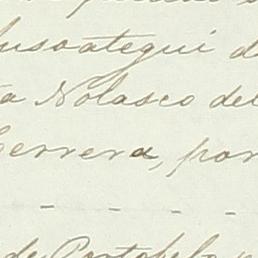 usoategui d
a Nolasco del
Herrera, por
de Portobelo